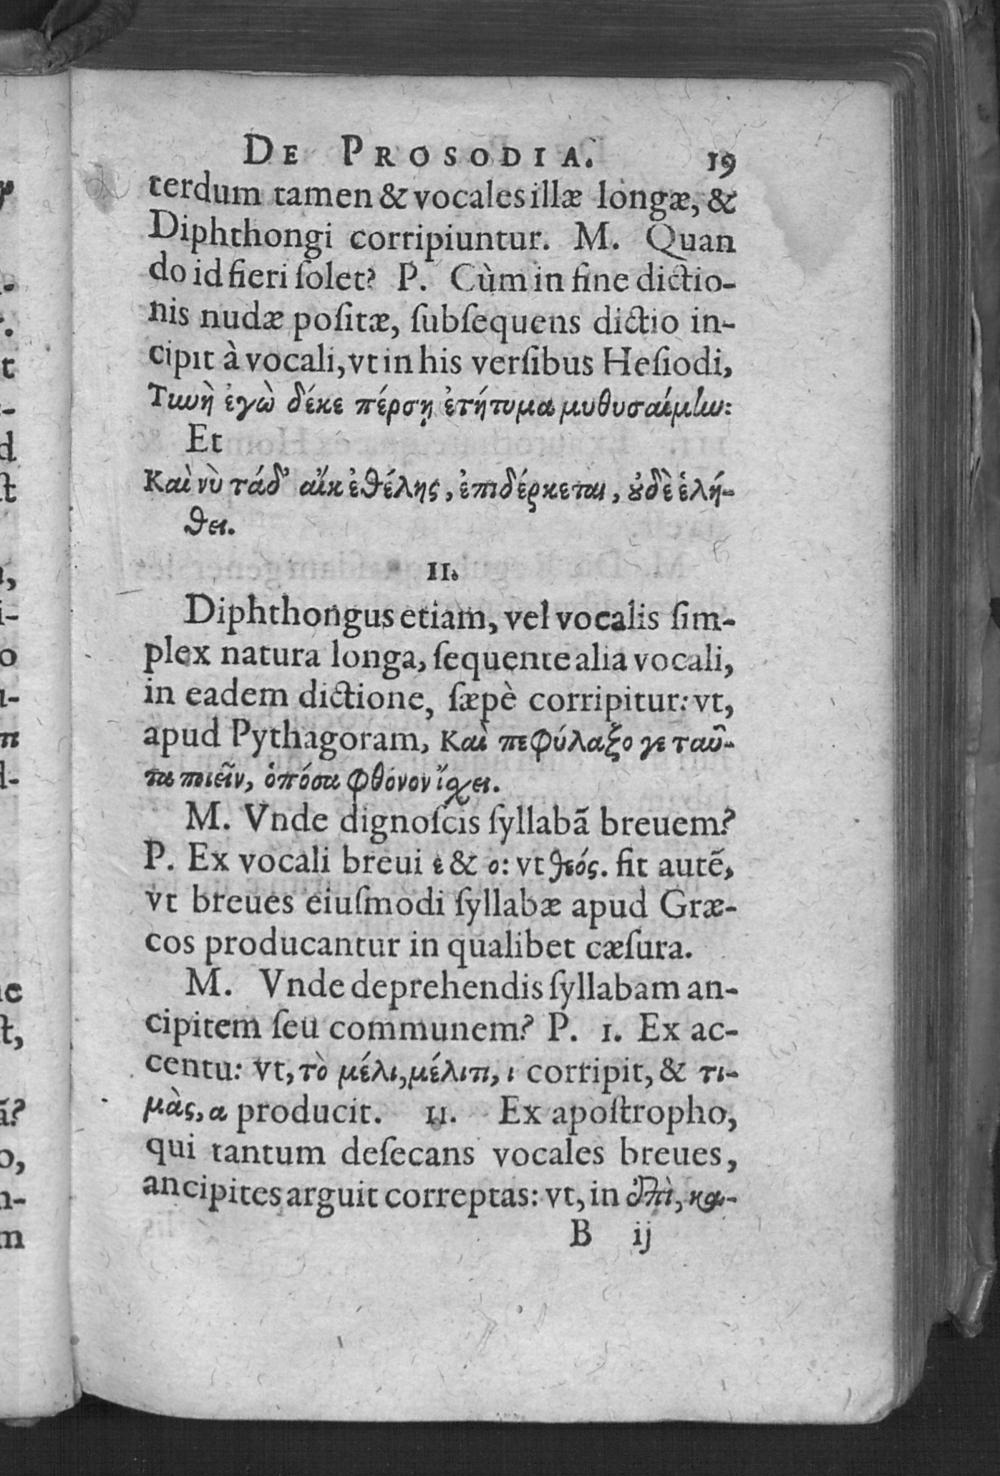 DE PROSODIA. 19
terdum tamen & vocales illæ longæ, &
Diphthongi corripiuntur. M. Quan
do id fieri ſolet? P. Cùm in fine dictio-
nis nudæ poſitæ, ſubſequens dictio in-
cipit à vocali, vt in his verſibus Heſiodi,
Τιωὴ ἐγὼ δέκε πέρσῃ ἐτήτυμα μυθυσαίμlω:
Et
Καὶ νὺ τάδ' αἴκ ἐθέλης, ἐπιδέρκεται, ȣδὲ ἑλή-
θει.
II.
Diphthongus etiam, vel vocalis ſim-
plex natura longa, ſequente alia vocali,
in eadem dictione, ſæpè corripitur: vt,
apud Pythagoram, Καὶ πεφύλαξο γε ταῦ-
τα ποιεῖν, ὁπόσα φθόνον ἴχει.
M. Vnde dignoſcis ſyllabã breuem?
P. Ex vocali breui ε & ο: vt θεός. fit autẽ,
vt breues eiuſmodi ſyllabæ apud Græ-
cos producantur in qualibet cæſura.
M. Vnde deprehendis ſyllabam an-
cipitem ſeu communem? P. I. Ex ac-
centu: vt, τὸ μέλι, μέλιπι, ι corripit, & τι-
μὰς, α producit. II. Ex apoſtropho,
qui tantum deſecans vocales breues,
ancipites arguit correptas: vt, in ἐπὶ, κα-
B ij